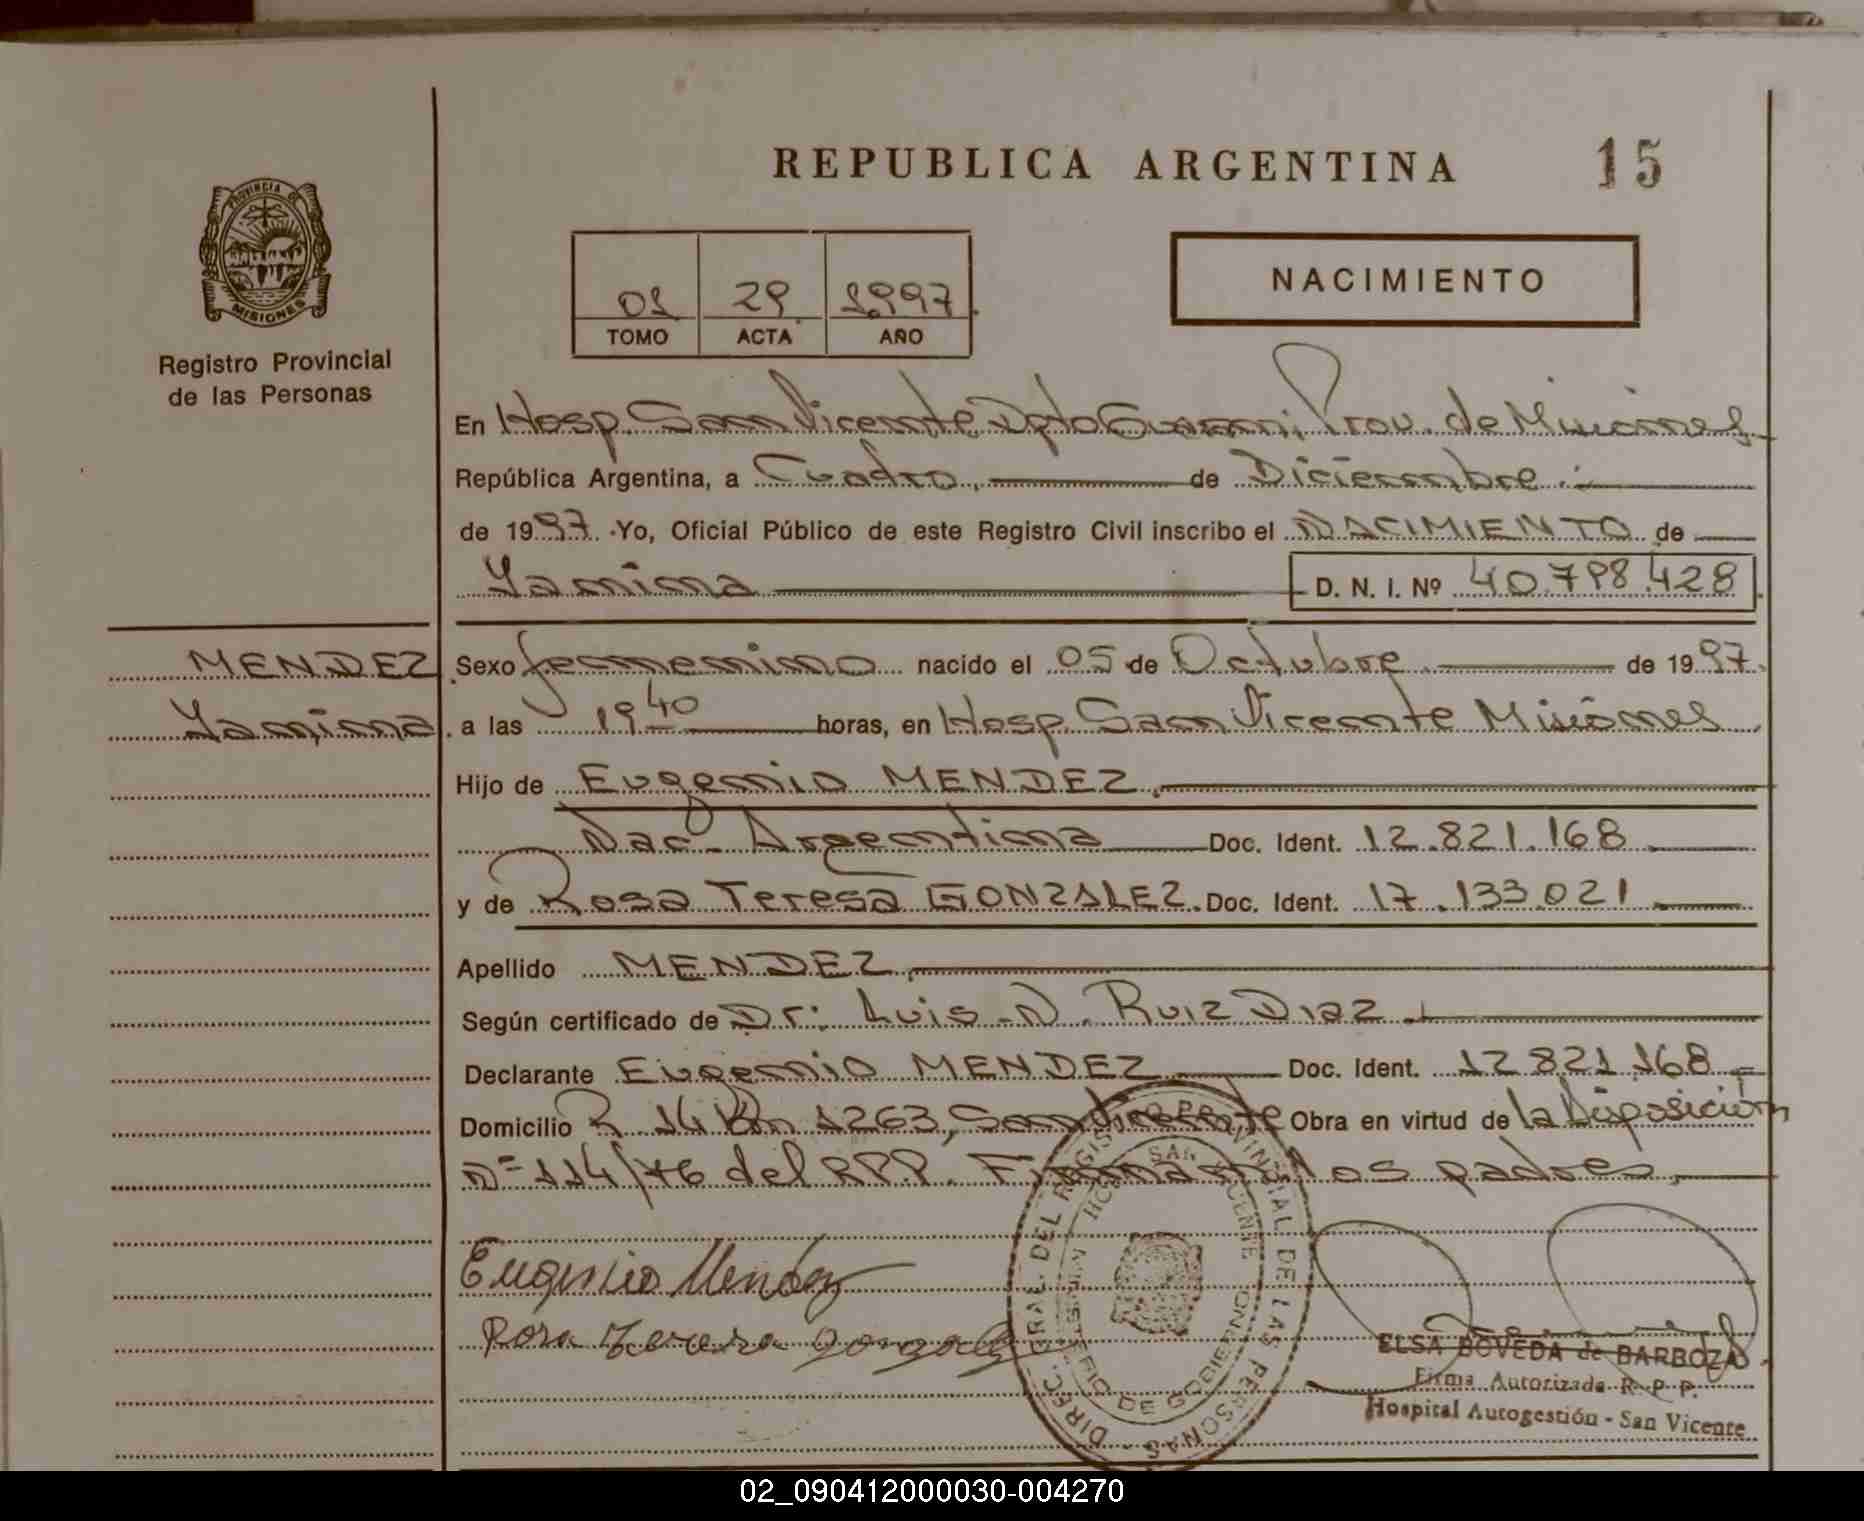 REPUBLICA ARGENTINA
15
PROVINCIA DE
MISIONES
Registro Provincial
de las Personas
01 29 1.997.
TOMO ACTA AÑO
NACIMIENTO
En Hosp. San Vicente Dpto Guarani, Prov. de Misiones
República Argentina, a Cuadro, de Diciembre
de 1997. Yo, Oficial Público de este Registro Civil inscribo el NACIMIENTO de
Yanina D. N. I. Nº 40.798.428
MENDEZ
Yanina
Sexo femenino nacido el 05 de Octubre de 1997.
a las 19 40 horas, en Hosp. San Vicente Misiones
Hijo de Eugenio MENDEZ,
Nac. Argentina Doc. Ident. 12.821.168
y de Rosa Teresa GONZALEZ. Doc. Ident. 17.133.021
Apellido MENDEZ
Según certificado de Dr: Luis N. Ruiz Diaz
Declarante Eugenio MENDEZ Doc. Ident. 12 821 168
Domicilio R 14 Km 1263, San Vicente Obra en virtud de la Disposición
Nº 114/76 del R.P.P. Firman los padres
Eugenio Mendez
Rosa Teresa gonzalez
DIREC. GRAL. DEL REGIS PROVINCIAL DE LAS PERSONAS
SAN VICENTE
DE GOBIERNO
ELSA BOVEDA de BARBOZA
Firma Autorizada R. P. P.
Hospital Autogestión - San Vicente
02_090412000030-004270